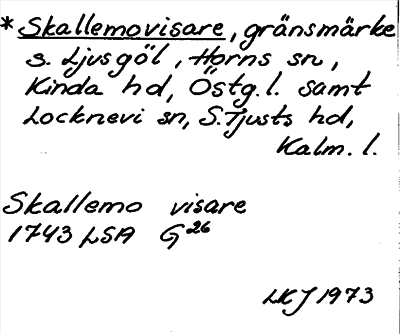 * Skallemovisare, gränsmärke
s. Ljusgöl, Horns sn,
Kinda hd, Östg. l. samt
Locknevi sn, S. Tjusts hd,
Kalm. l.
Skallemo visare
1743 LSA G 26
LKJ 1973